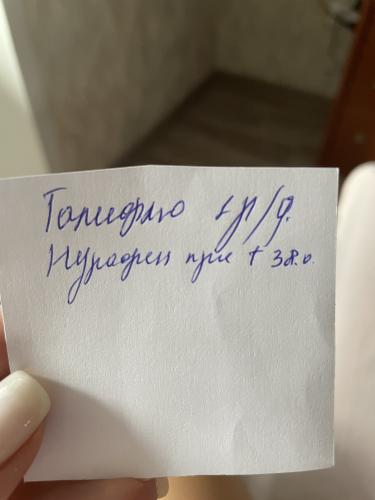 Тамифлю 1 р/д.
Нурофен при t 38.0.